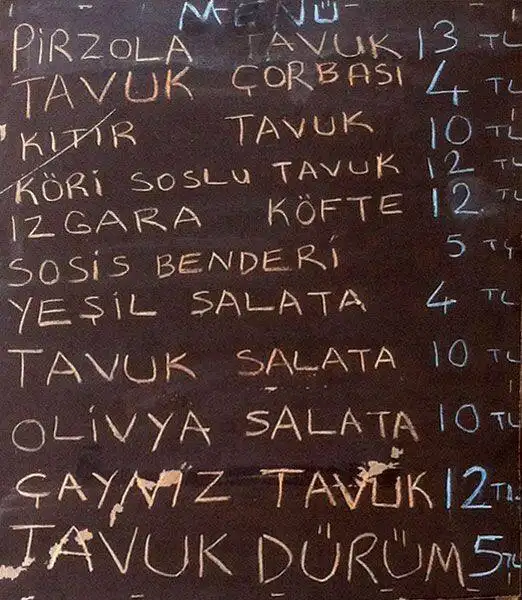 MENÜ
PİRZOLA TAVUK 13 TL
TAVUK ÇORBASI 4 TL
KITIR TAVUK 10 TL
KÖRİ SOSLU TAVUK 12 TL
IZGARA KÖFTE 12 TL
SOSİS BENDERİ 5 TL
YEŞİL SALATA 4 TL
TAVUK SALATA 10 TL
OLİVYA SALATA 10 TL
ÇAYNİZ TAVUK 12 TL
TAVUK DÜRÜM 5 TL